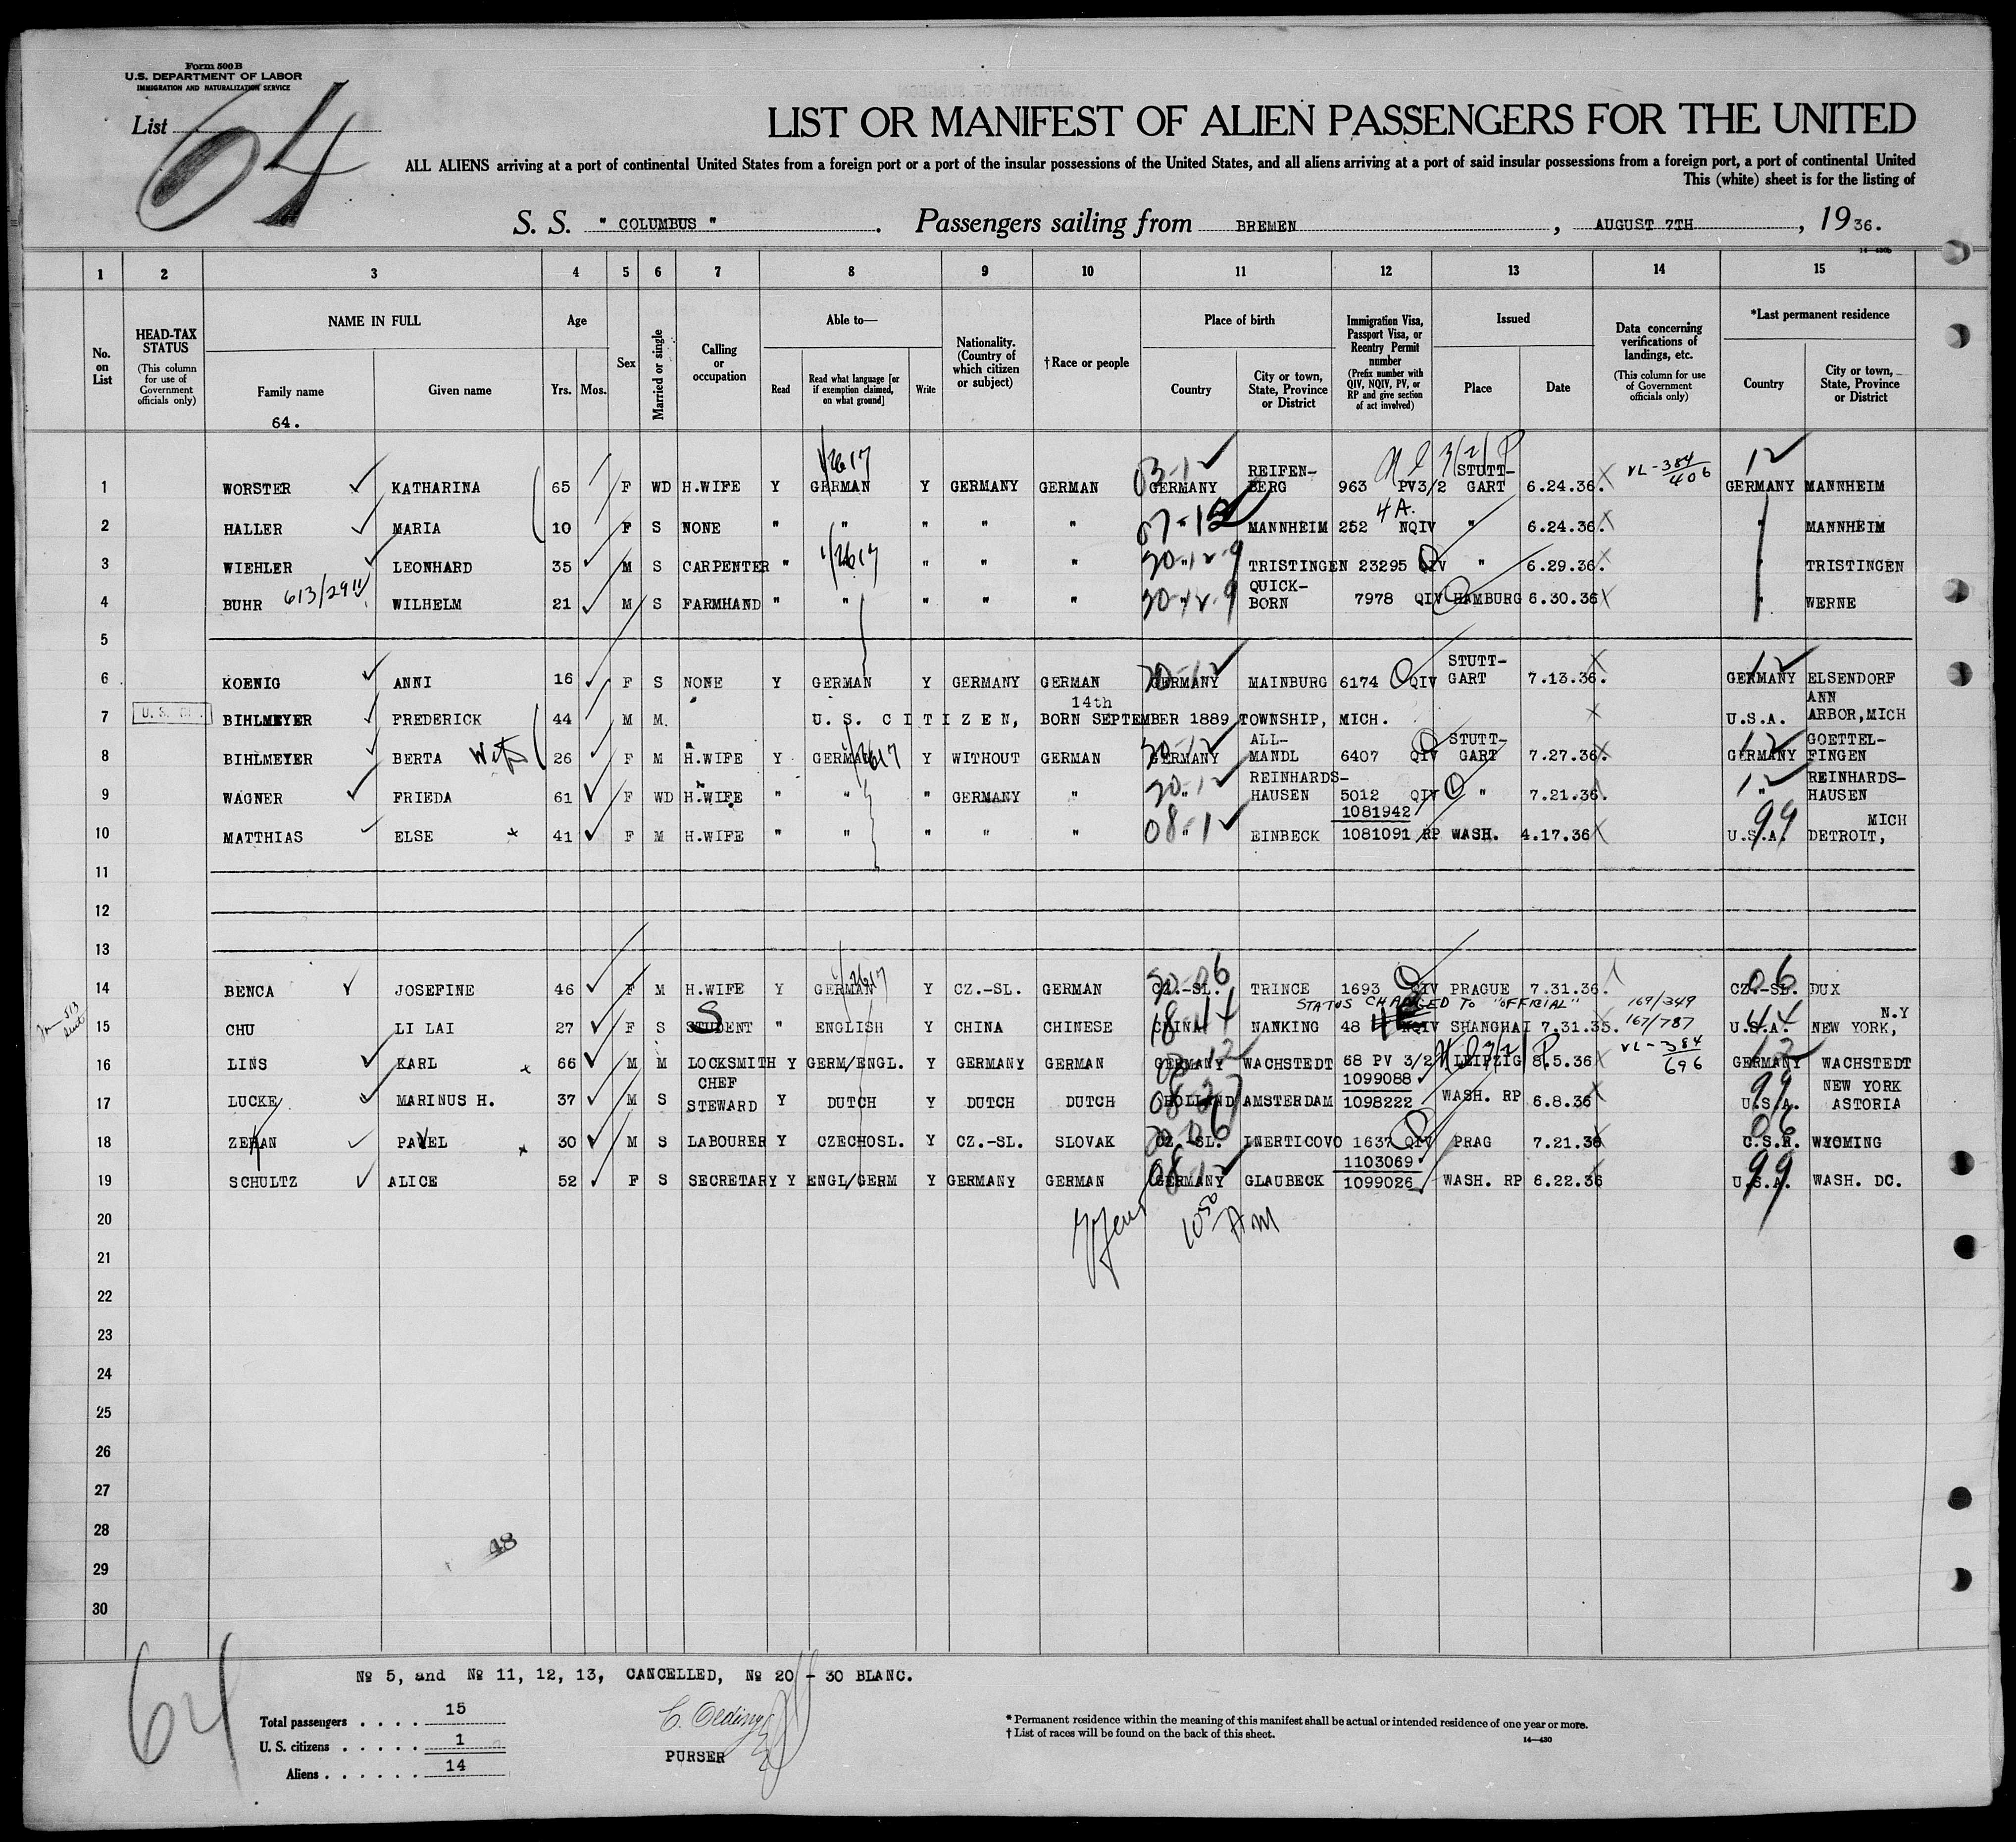 Form 500 B
U.S. DEPARTMENT OF LABOR
IMMIGRATION AND NATURALIZATION SERVICE
List 64
LIST OR MANIFEST OF ALIEN PASSENGERS FOR THE UNITED
ALL ALIENS arriving at a port of continental United States from a foreign port or a port of the insular possessions of the United States, and all aliens arriving at a port of said insular possessions from a foreign port, a port of continental United
This (white) sheet is for the listing of
S. S. " COLUMBUS ". Passengers sailing from BREMEN, AUGUST 7TH, 1936.
1 2 3 4 5 6 7 8 9 10 11 12 13 14 15
No. on List
HEAD-TAX STATUS (This column for use of Government officials only)
NAME IN FULL
Family name Given name
64.
Age
Yrs. Mos.
Sex
Married or single
Calling or occupation
Able to—
Read Read what language [or if exemption claimed, on what ground] Write
Nationality. (Country of which citizen or subject)
† Race or people
Place of birth
Country City or town, State, Province or District
Immigration Visa, Passport Visa, or Reentry Permit number (Prefix number with QIV, NQIV, PV, or RP and give section of act involved)
Issued
Place Date
Data concerning verifications of landings, etc. (This column for use of Government officials only)
*Last permanent residence
Country City or town, State, Province or District
1 WORSTER KATHARINA 65 F WD H.WIFE Y GERMAN Y GERMANY GERMAN 03-12 GERMANY REIFEN-BERG 963 PV3/2 STUTT-GART 6.24.36. VL-384/406 12 GERMANY MANNHEIM
2 HALLER MARIA 10 F S NONE " " " " " 07-12 " MANNHEIM 252 4A. NQIV " 6.24.36. " MANNHEIM
3 WIEHLER LEONHARD 35 M S CARPENTER " " " " 20-12-9 TRISTINGEN 23295 QIV " 6.29.36. TRISTINGEN
4 BUHR 613/29 WILHELM 21 M S FARMHAND " " " " " 20-12-9 QUICK-BORN 7978 QIV HAMBURG 6.30.36 " WERNE
5
6 KOENIG ANNI 16 F S NONE Y GERMAN Y GERMANY GERMAN 20-12 GERMANY MAINBURG 6174 QIV STUTT-GART 7.13.36. 12 GERMANY ELSENDORF
7 BIHLMEYER FREDERICK 44 M M. U. S. C I T I Z E N, BORN SEPTEMBER 14th 1889 TOWNSHIP, MICH. U.S.A. ANN ARBOR, MICH
8 BIHLMEYER BERTA Wife 26 F M H.WIFE Y GERMAN Y WITHOUT GERMAN 20-12 GERMANY ALL-MANDL 6407 QIV STUTT-GART 7.27.36. 12 GERMANY GOETTEL-FINGEN
9 WAGNER FRIEDA 61 F WD H.WIFE " " " GERMANY " 20-12 " REINHARDS-HAUSEN 5012 QIV " 7.21.36. 12 " REINHARDS-HAUSEN
10 MATTHIAS ELSE 41 F M H.WIFE " " " " " 08-12 " EINBECK 1081942 1081091 RP WASH. 4.17.36 99 U.S.A. MICH DETROIT,
11
12
13
14 BENCA JOSEFINE 46 F M H.WIFE Y GERMAN Y CZ.-SL. GERMAN 20-06 CZ.-SL. TRINCE 1693 QIV PRAGUE 7.31.36. 06 CZ.-SL. DUX
STATUS CHANGED TO "OFFICIAL" 169/349
15 CHU LI LAI 27 F S STUDENT S " ENGLISH Y CHINA CHINESE 18-44 CHINA NANKING 48 4E NQIV SHANGHAI 7.31.35. 167/787 44 U.S.A. N.Y NEW YORK,
16 LINS KARL 66 M M LOCKSMITH Y GERM/ENGL. Y GERMANY GERMAN GERMANY WACHSTEDT 68 PV 3/2 LEIPZIG 8.5.36 VL-384/696 12 GERMANY WACHSTEDT
17 LUCKE MARINUS H. 37 M S CHEF STEWARD Y DUTCH Y DUTCH DUTCH 08-27 HOLLAND AMSTERDAM 1099088 1098222 WASH. RP 6.8.36 99 U.S.A. NEW YORK ASTORIA
18 ZEMAN PAVEL 30 M S LABOURER Y CZECHOSL. Y CZ.-SL. SLOVAK 20-06 CZ.-SL. INERTICOVO 1637 QIV PRAG 7.21.36 06 C.S.R. WYOMING
19 SCHULTZ ALICE 52 F S SECRETARY Y ENGL/GERM Y GERMANY GERMAN 08-12 GERMANY GLAUBECK 1103069 1099026 WASH. RP 6.22.36 99 U.S.A. WASH. DC.
10 50 AM
20
21
22
23
24
25
26
27
28
48
29
30
64
№ 5, and № 11, 12, 13, CANCELLED, № 20 - 30 BLANC.
Total passengers . . . . 15
U. S. citizens . . . . . 1
Aliens . . . . . . 14
C. Oeding
PURSER
* Permanent residence within the meaning of this manifest shall be actual or intended residence of one year or more.
† List of races will be found on the back of this sheet.
14—430